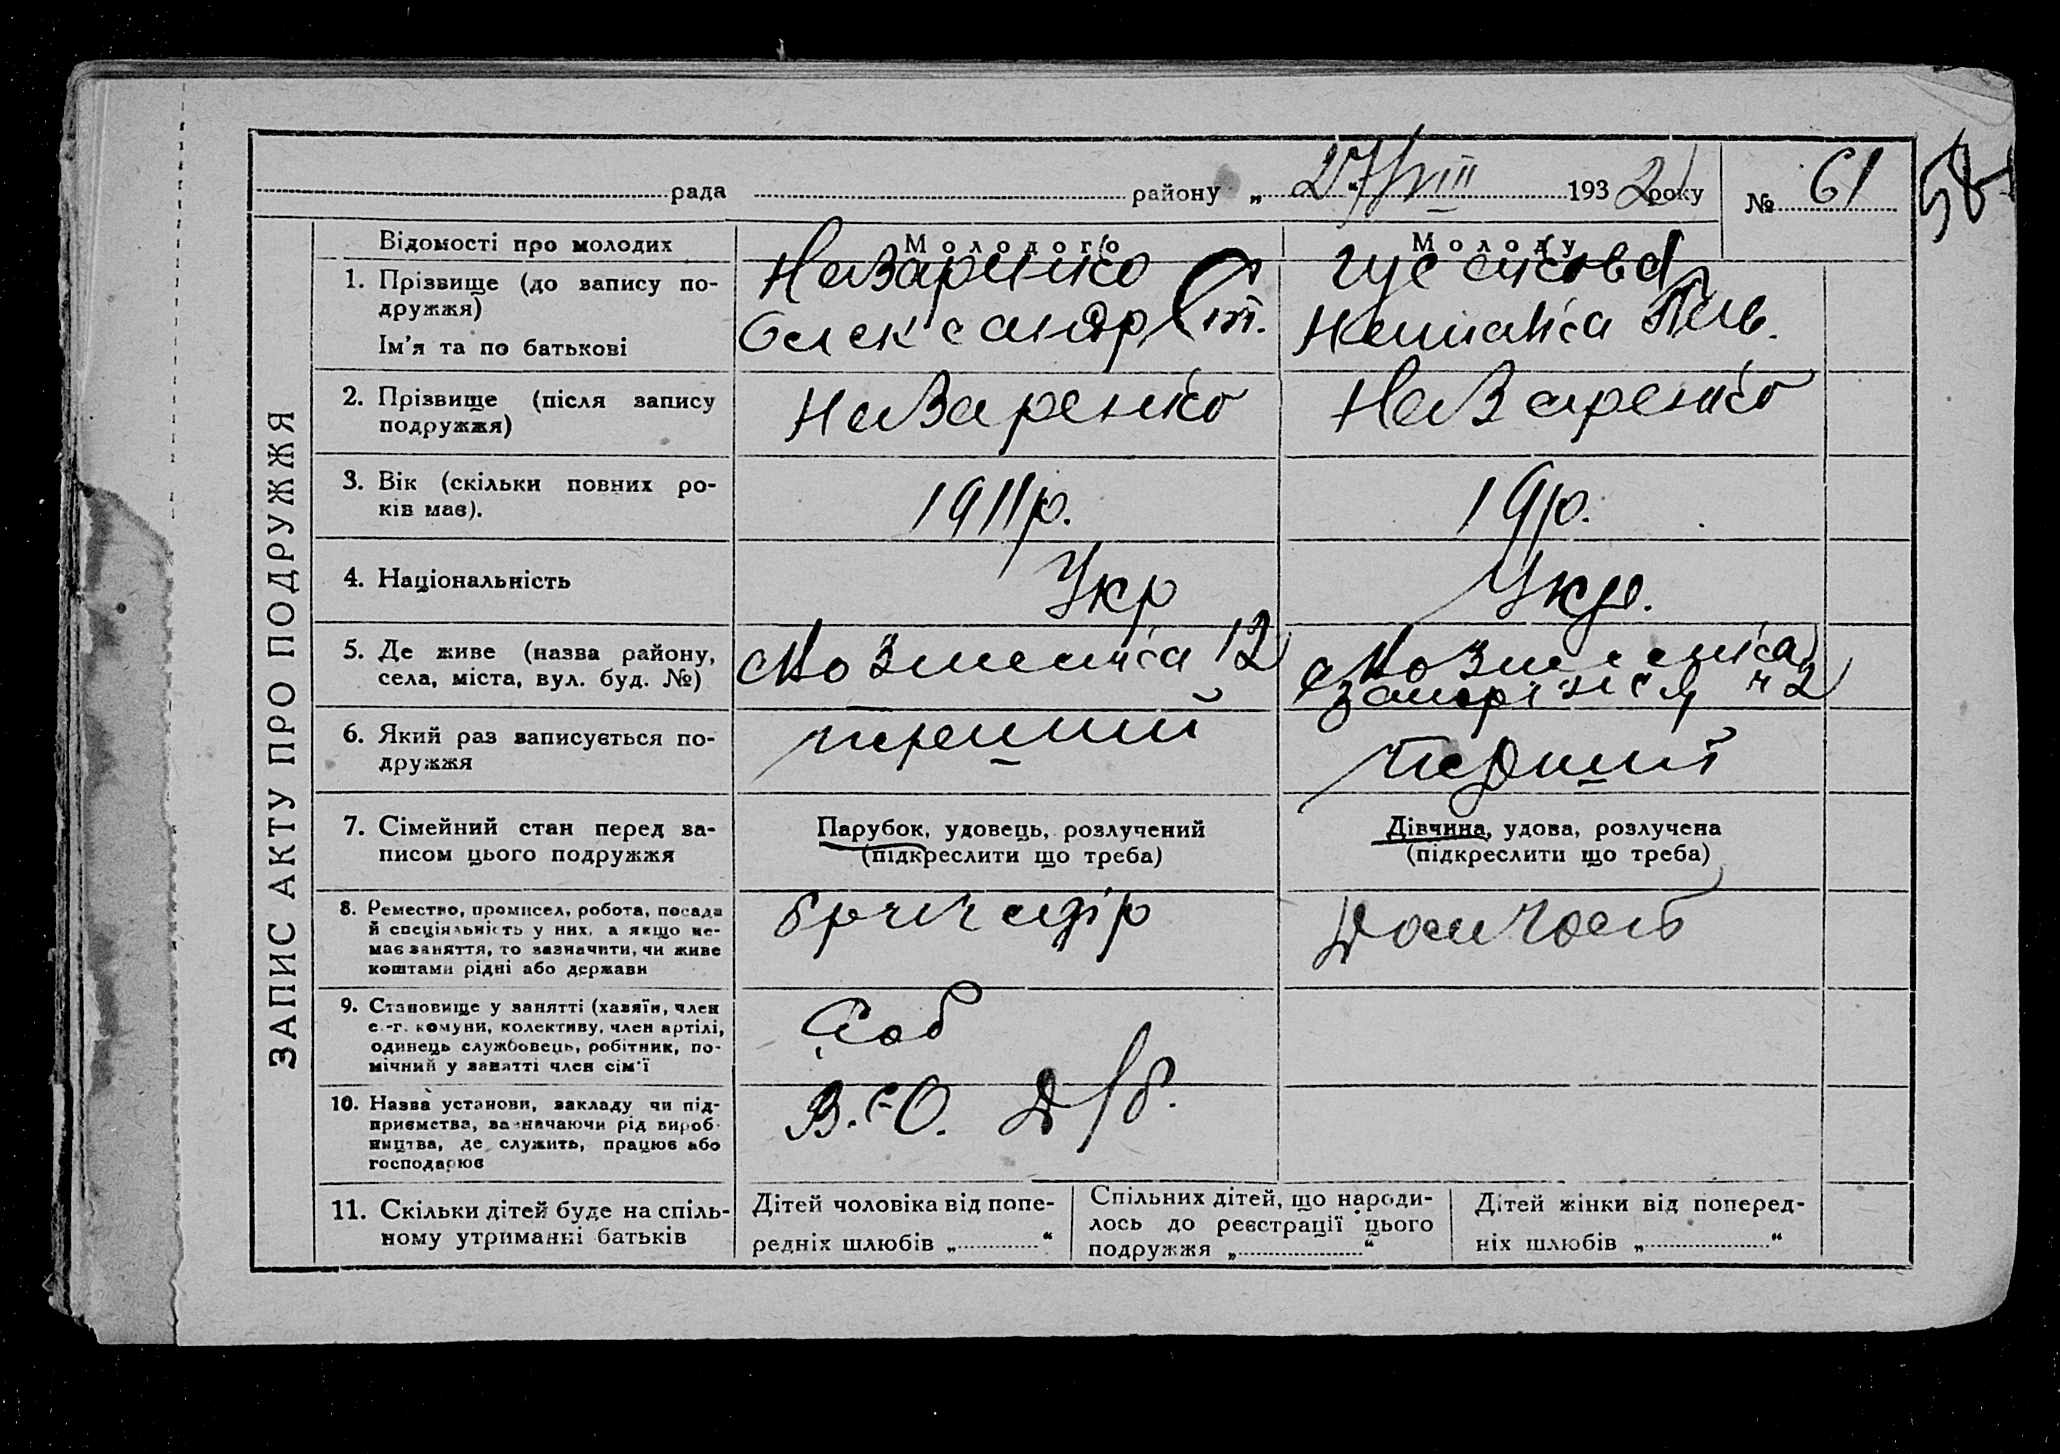 рада района „27/VIII 1932 року № 61
58
ЗАПИС АКТУ ПРО ПОДРУЖЖЯ
Відомості про молодих
Молодого
Молоду
1. Прізвище (до запису по-
дружжя)
Ім'я та по батькові
Назаренко
Олександр
2. Прізвище (після запису
подружжя)
Назаренко
Назаренко
3. Вік (скільки повних ро-
ків має).
1911р.
19р.
4. Національність
Укр
Укр.
5. Де живе (назва району,
села, міста, вул. буд. №)
12
6. Який раз записується по-
дружжя
перший
перший
7. Сімейний стан перед за-
писом цього подружжя
Парубок, удовець, розлучений
(підкреслити що треба)
Дівчина, удова, розлучена
(підкреслити що треба)
8. Ремество, промисел, робота, посада
й спеціяльність у них, а якщо не-
має заняття, то зазначити, чи живе
коштами рідні або держави
бригадір
Домгосп
9. Становище у занятті (хазяїн, член
с.-г. комуни, колективу, член артілі,
одинець службовець, робітник, по-
мічний у занятті член сім'ї
10. Назва установи, закладу чи під-
приємства, зазначаючи рід вироб-
ництва, де служить, працює або
господарює
11. Скільки дітей буде на спіль-
ному утриманні батьків
Дітей чоловіка від попе-
редніх шлюбів „ “
Спільних дітей, що народи-
лось до реєстрації цього
подружжя „ “
Дітей жінки від поперед-
ніх шлюбів „ “